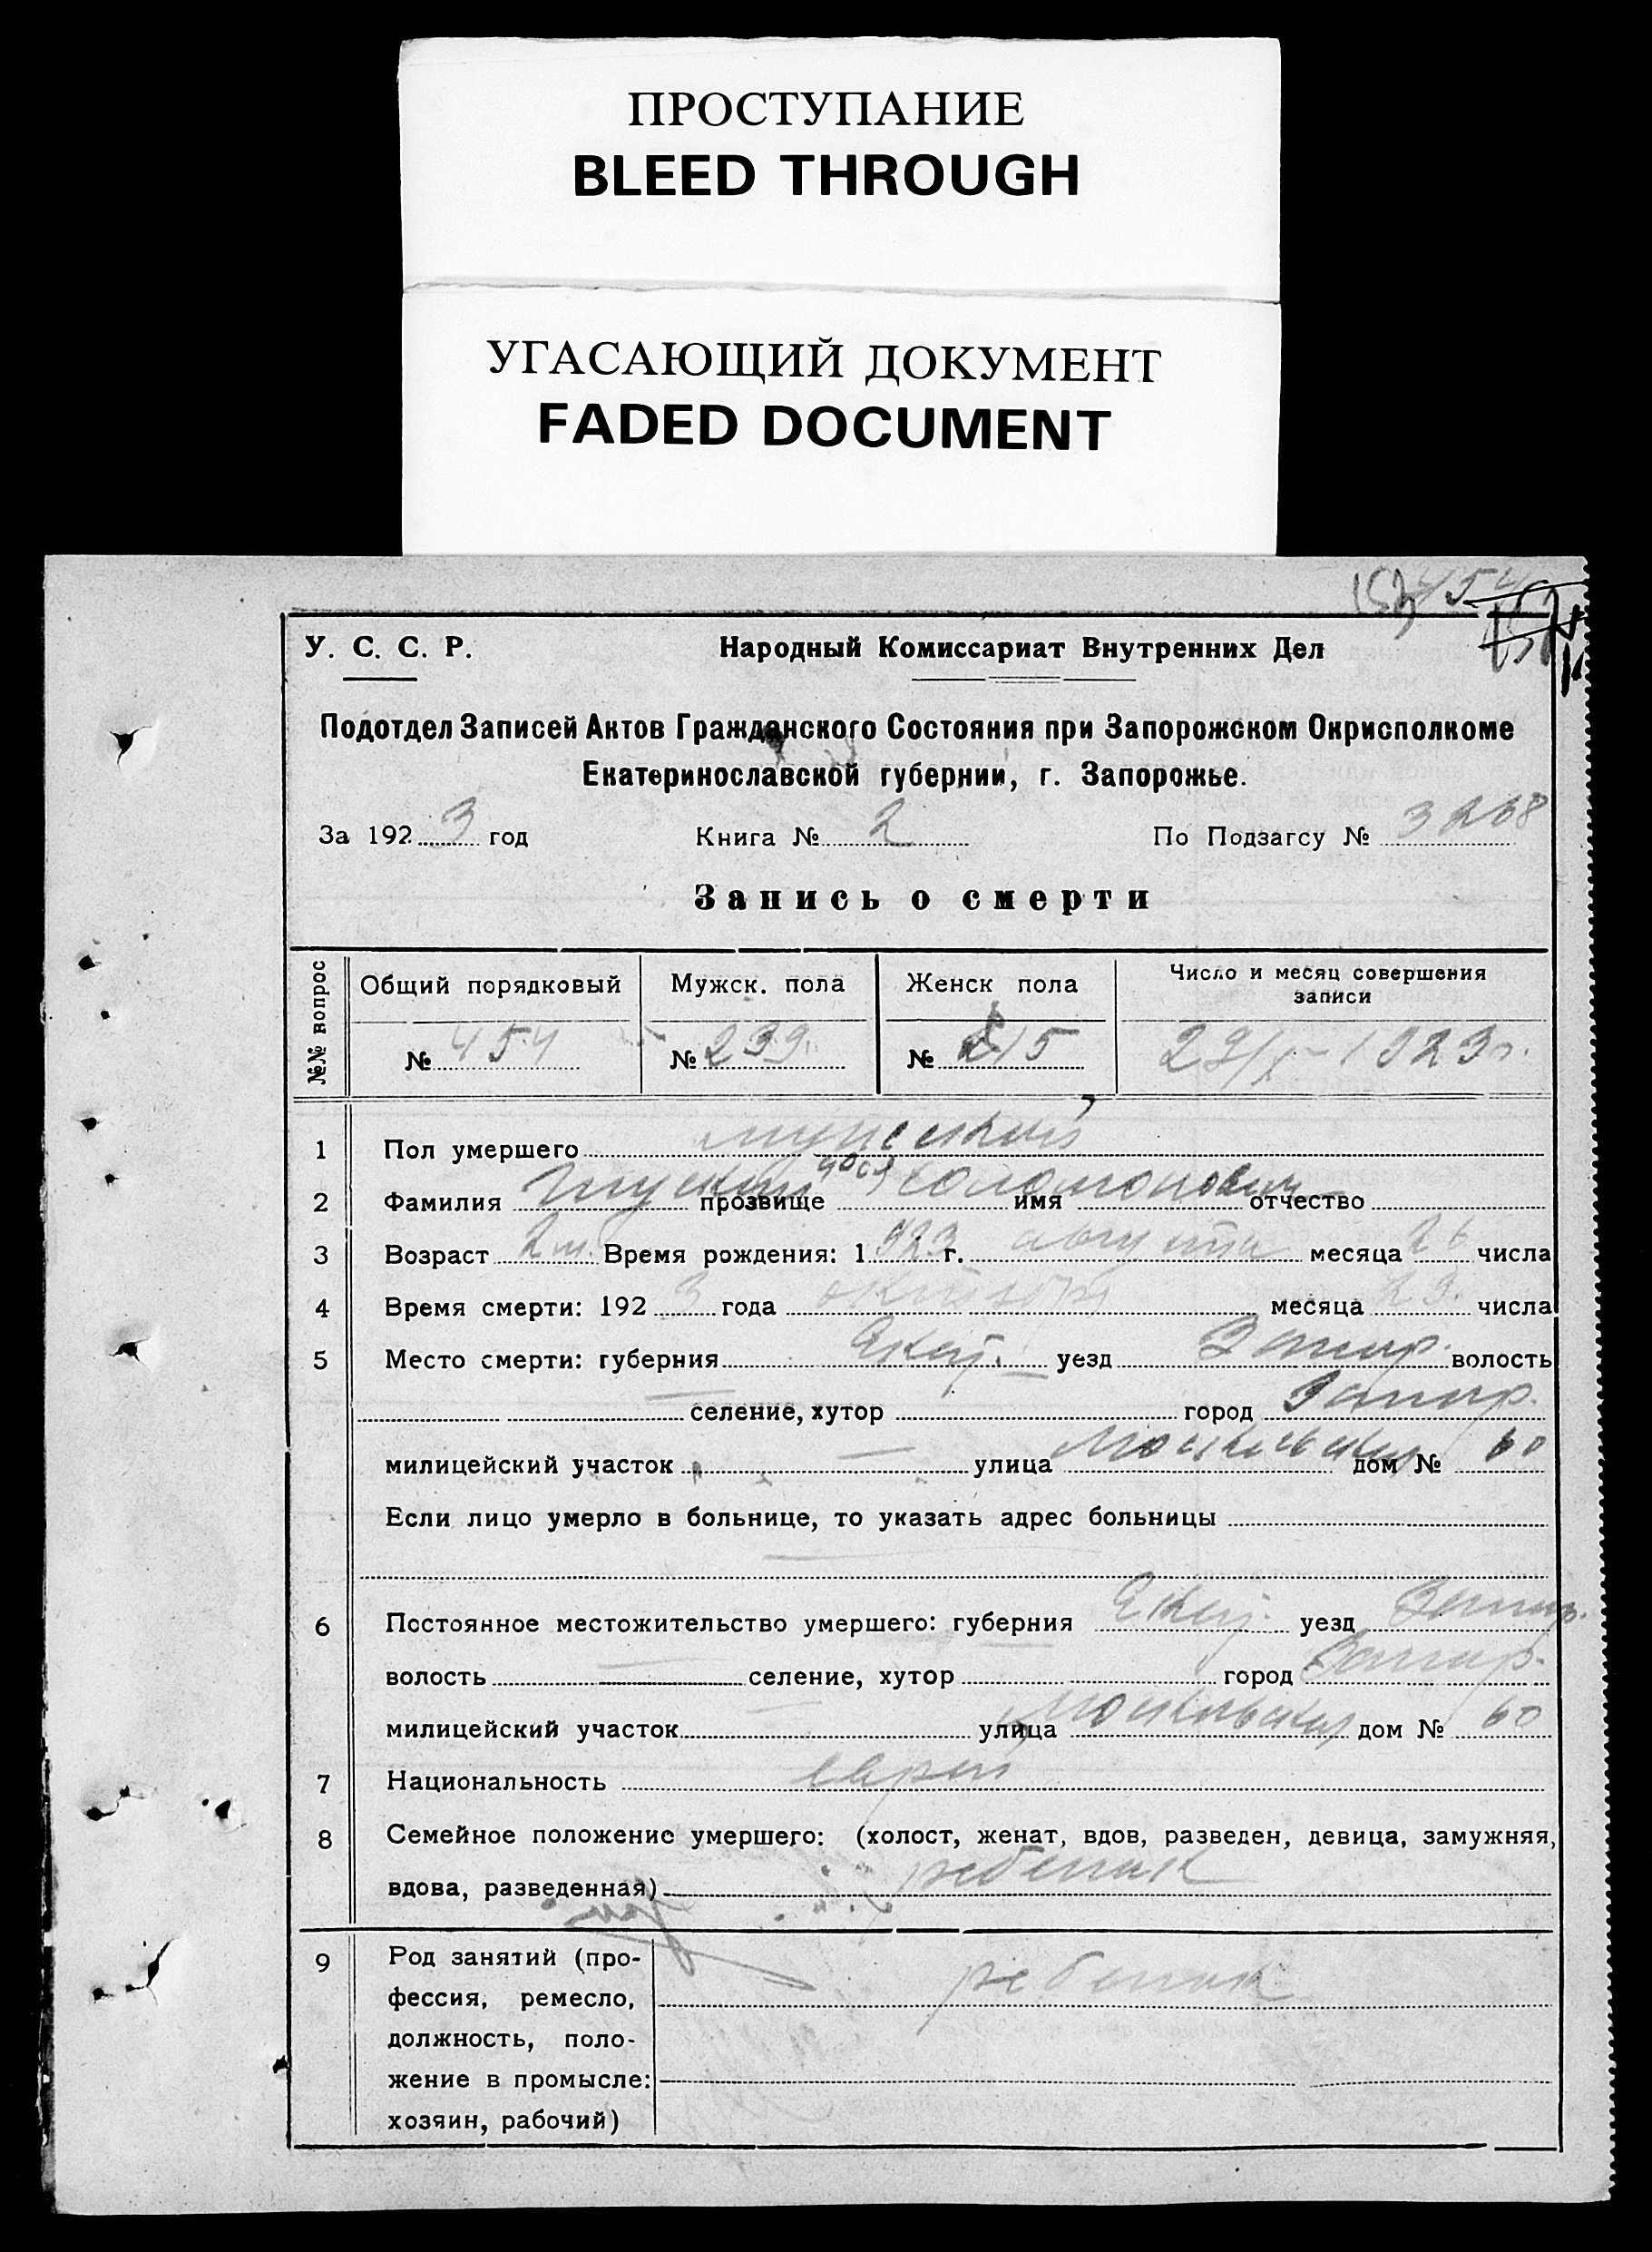 ПРОСТУПАНИЕ
BLEED THROUGH
УГАСАЮЩИЙ ДОКУМЕНТ
FADED DOCUMENT
153 454
У. С. С. Р. Народный Комиссариат Внутренних Дел
Подотдел Записей Актов Гражданского Состояния при Запорожском Окрисполкоме
Екатеринославской губернии, г. Запорожье.
За 1923 год Книга № 2 По Подзагсу № 3268
Запись о смерти
№№ вопрос Общий порядковый Мужск. пола Женск пола Число и месяц совершения записи
№ 454 № 239 № 215 29/X-1923г.
1 Пол умершего мужской
2 Фамилия прозвище имя Соломонович отчество
3 Возраст 2 м. Время рождения: 1923 г. августа месяца 26 числа
4 Время смерти: 1923 года октября месяца 29 числа
5 Место смерти: губерния Екат. уезд Запор. волость
селение, хутор город Запор.
милицейский участок — улица Московская дом № 60
Если лицо умерло в больнице, то указать адрес больницы
6 Постоянное местожительство умершего: губерния Екат. уезд Запор.
волость селение, хутор город Запор.
милицейский участок улица Московская дом № 60
7 Национальность еврей
8 Семейное положение умершего: (холост, женат, вдов, разведен, девица, замужняя,
вдова, разведенная) ребенок
9 Род занятий (про-
фессия, ремесло, ребенок
должность, поло-
жение в промысле:
хозяин, рабочий)